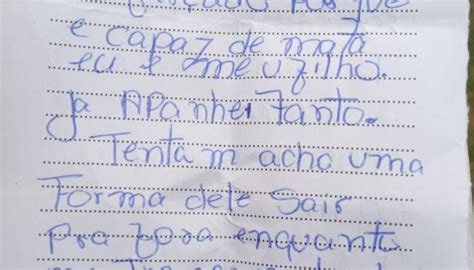 por que
e capaz de mata
eu e meu filho.
Ja APanhei tanto.
Tenta m acho uma
Forma dele Sair
pra fora enquanto